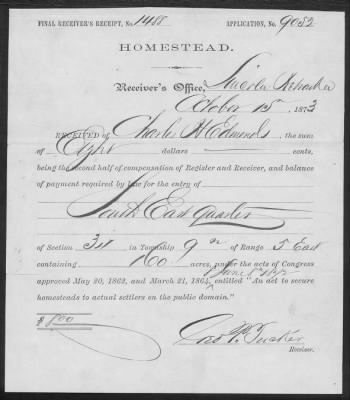 FINAL RECEIVER'S RECEIPT, No. 1488 APPLICATION, No. 9052
HOMESTEAD.
Receiver's Office, Lincoln Nebraska
October 15th 1873
RECEIVED OF Charles H Edmonds, the sum
of Eight dollars cents,
being the second half of compensation of Register and Receiver, and balance
of payment required by law for the entry of
South East quarter
of Section in Township 9 of Range 5 East
containing 160 acres, under the acts of Congress
& June 8th 1872
approved May 20, 1862, and March 21, 1864, entitled "An act to secure
homesteads to actual settlers on the public domain."
$ 8.00
Geo P. Tucker
Receiver.